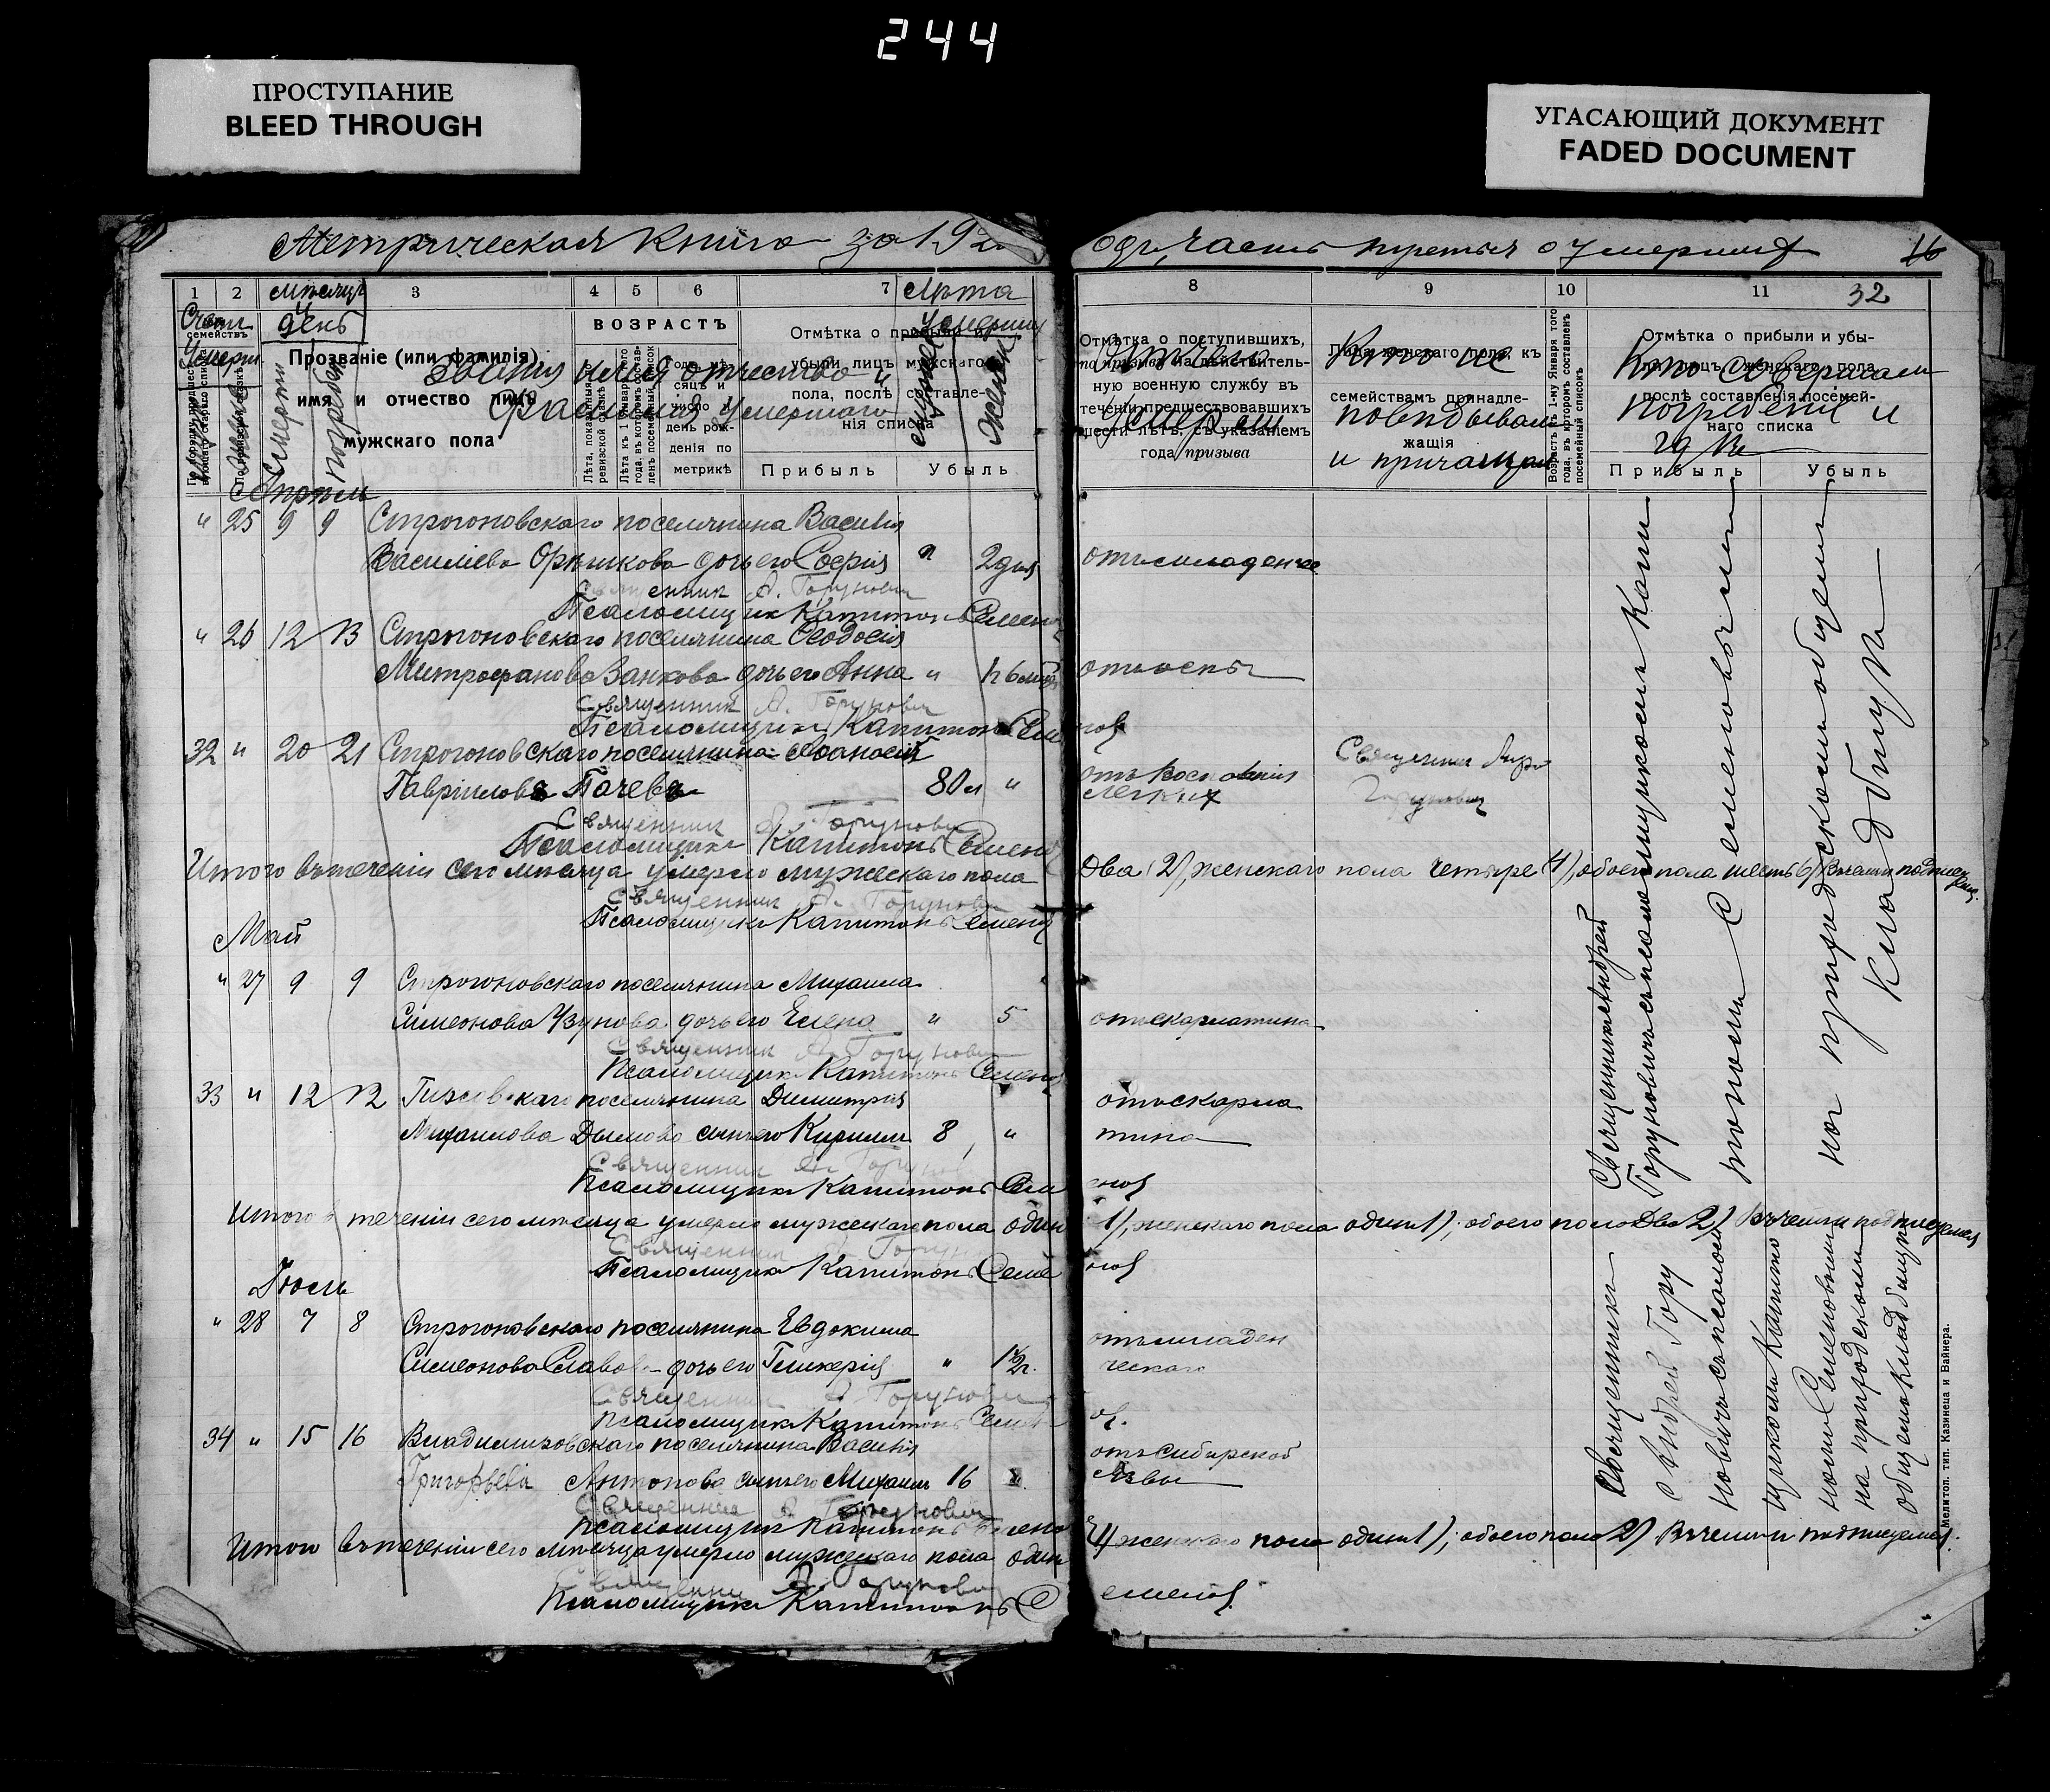 244
ПРОСТУПАНИЕ
BLEED THROUGH
УГАСАЮЩИЙ ДОКУМЕНТ
FADED DOCUMENT
Метрическая Книга за 192
годъ, часть третья о умершихъ
16
32
1 2 мѣсяцъ 3 4 5 6 7 Лѣта
и день
семействъ
ВОЗРАСТЪ
Прозваніе (или фамилія)
имя и отчество лицъ
мужскаго пола
Лѣта, показанныя въ ревизской сказкѣ
Лѣта къ 1 Января того года, въ которомъ составленъ посемейный список
Годъ, мѣсяцъ и число и день рожденія по метрикѣ
Отмѣтка о прибыли и
убыли лицъ мужскаго
пола, послѣ составле-
нія списка
Прибыль Убыль
Званіе имя отчество и
фамилія умершаго
смерти
погребен
8 9 10 11
Отмѣтка о поступившихъ,
по призыва на дѣйствитель-
ную военную службу въ
теченіи предшествовавшихъ
шести лѣтъ, съ указаніемъ
года призыва
Отъ чего
умеръ
Лица женскаго пола, къ
семействамъ принадле-
жащія
Кто ис
повѣдывалъ
и причащал
Возрастъ къ 1-му Января того года, въ которомъ составленъ посемейный списокъ
Отмѣтка о прибыли и убы-
ли лицъ женскаго пола
послѣ составленія посемей-
наго списка
Прибыль Убыль
Кто совершалъ
погребеніе и
гдѣ
Апрѣль
" 25 9 9 Строгоновскаго поселянина Василія
Василіева Орѣшкова дочь его Софія " 2 дня отъ младенче
Священник А. Горунович
Псаломщикъ Капитонъ Семенов
" 26 12 13 Строгоновскаго поселянина Феодосія
Митрофанова Занкова дочь его Анна " отъ оспы
Священник А. Горунович
Псаломщикъ Капитонъ Семенов
32 " 20 21 Строгоновскаго поселянина Афанасій
Гавріиловъ Пачевъ 80 л " отъ воспаленія легкихъ
Священник Андре Горунович
Священник А. Горунович
Псаломщикъ Капитонъ Семенов
Итого въ теченіи сего мѣсяца умерло мужескаго пола два (2), женскаго пола четыре (4), обоего пола шесть (6) Въ чемъ и подписуемся.
Священник А. Горунович
Псаломщикъ Капитонъ Семенов
Май
" 27 9 9 Строгоновскаго поселянина Михаила
Симеонова Узунова дочь его Елена " 5 отъ скарлатина
Священник А. Горунович
Псаломщикъ Капитонъ Семенов
33 " 12 12 поселянина Димитрія отъ скарла
Михаилова Дымова сынъ его Кириллъ 8 " тина
Священник А. Горунович
Псаломщикъ Капитонъ Семенов
Итого въ теченіи сего мѣсяца умерло мужескаго пола один 1), женскаго пола один 1); обоего пола два 2) Въ чемъ и подписуемся
Священник А. Горунович
Псаломщикъ Капитонъ Семенов
" 28 7 8 Строгоновскаго поселянина Евдокима отъ младен
Симеонова Славова дочь его Гликерія " 1/2 г. ческаго
Священник А. Горунович
Псаломщикъ Капитонъ Семенов
34 " 15 16 Владимировскаго поселянина Василія отъ Сибирской
Григорьева Антонова сынъ его Михаилъ 16 " язвы
Священник А. Горунович
Псаломщик Капитонъ Семенов
Итого въ теченіи сего мѣсяца умерло мужескаго пола один 1) женскаго пола один 1); обоего пола 2) Въ чемъ и подписуемся.
Священник А. Горунович
Псаломщикъ Капитонъ Семенов
Священникъ Андрей
Горуновичъ съ псаломщикомъ Капи
тономъ Семеновымъ
на приходскомъ общемъ
кладбищѣ
Священникъ
Андрей Гору
новичъ съ псалом
щикомъ Капито
номъ Семеновымъ
на приходскомъ
общемъ кладбищѣ
Мелитоп. тип. Казинеца и Вайнера.